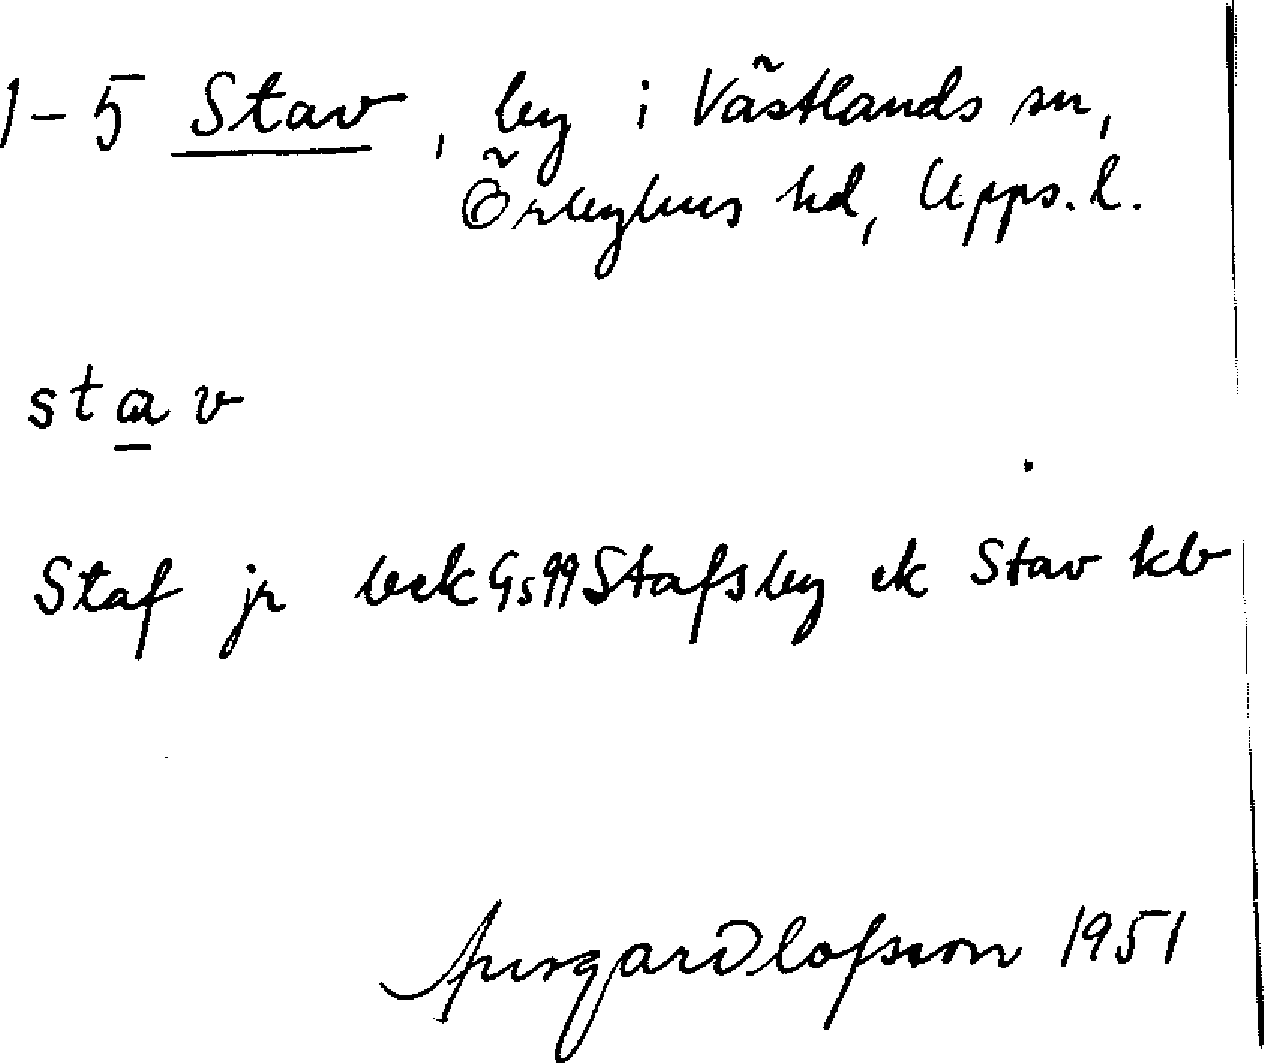 1-5 Stav, by i Västlands sn,
Örbyhus hd, Upps. l.
stav
Staf jr bek Gs 99 Stafsby ek Stav kb
Olofsson 1951